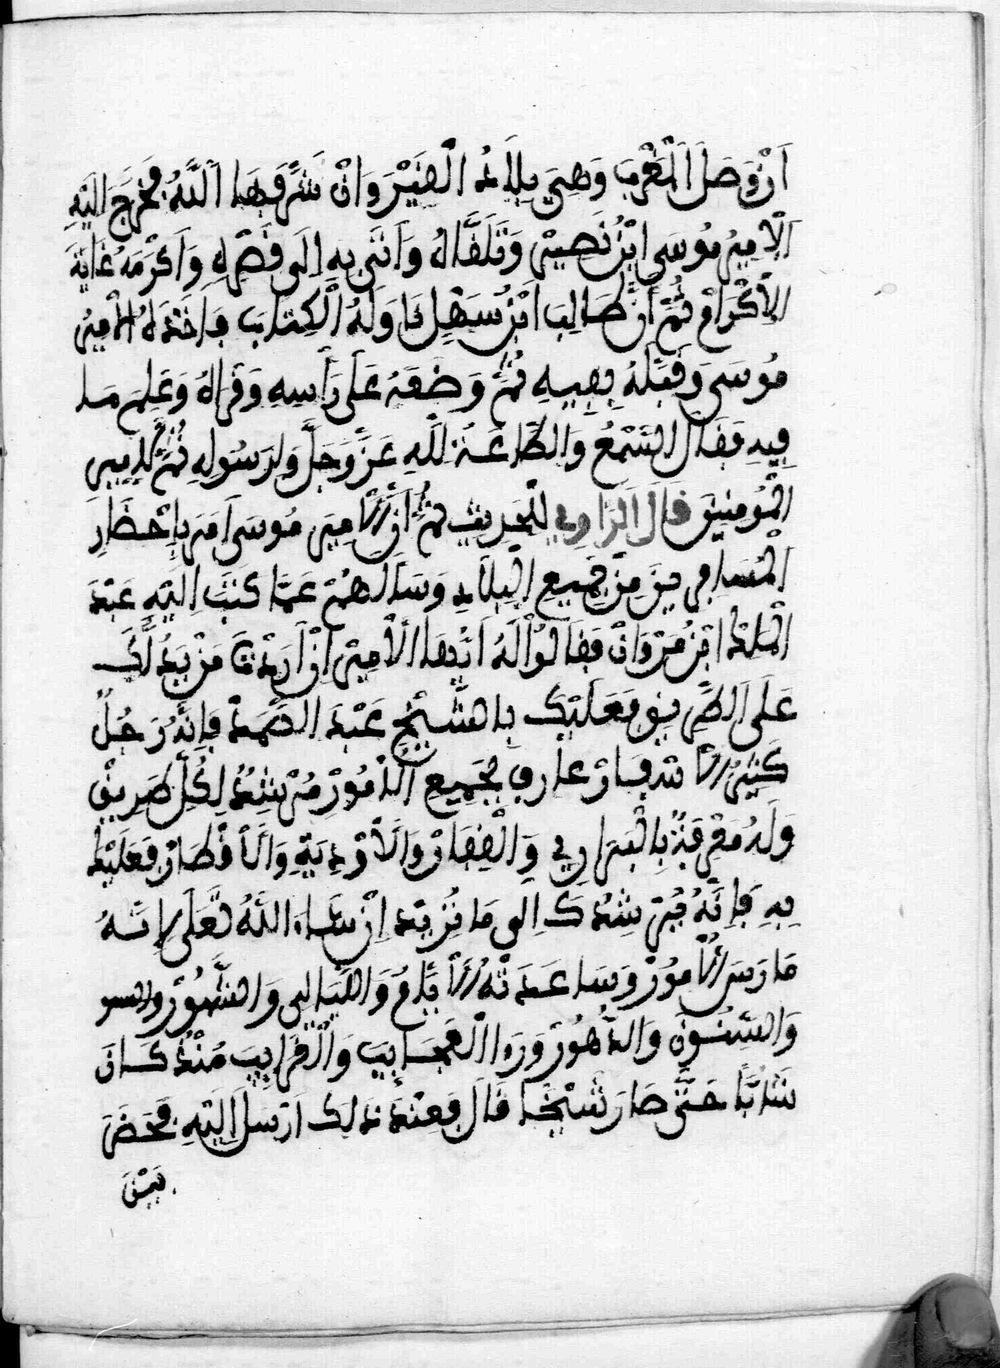 اَنْ وَصَلَ اَلْمَغْرِبَ وَهِيَ بِلَادُ الْقَيْرَوَانْ شَرَّفَهَا اَللَّهُ فَخَرَجَ اِلَيْهِ
الْاَمِيرُ مُوسَى ابْنُ نُصَيْرْ وَتَلَقَّاهُ وَاَتَى بِهِ اِلَى قَصْرِهِ وَاَكْرَمَهُ غَايَةَ
الْاِكْرَامْ ثُمَّ اَنَّ طَالِبَ ابْنُ سَهْلِ نَاوَلَهُ الْكِتَابَ فَاَخَذَهُ الْاَمِيرُ
مُوسَى وَقَبَّلَهُ بِفِيهِ ثُمَّ وَضَعَهُ عَلَى رَأْسِهِ وَقَرَاهُ وَعَلِمَ مَا
فِيهِ فَقَالَ السَّمْعُ وَالطَّاعَةُ لِلَّهِ عَزَّ وَجَلَّ وَلِرَسُولِهِ ثُمَّ لِاَمِيرِ
الْمُومِنِينَ قَالَ اَلرَّاوِي لِلْحَدِيثِ ثُمَّ اَنَّ الْاَمِيرَ مُوسَى اَمَرَ بِاِحْضَارِ
الْمُسَافِرِينَ مِنْ جَمِيعِ الْبِلَادِ وَسَاَلَهُمْ عَمَّا كَتَبَ اِلَيْهِ عَبْدَ
الْمَلِكْ ابْنُ مَرْوَانْ فَقَالُوا لَهُ اَيُّهَا الْاَمِيرْ اِنْ اَرَدْتَ مَنْ يَدُلُّكَ
عَلَى الطَّرِيقِ فَعَلَيْكَ بِالشَّيْخِ عَبْدَ الصَّمَدْ فَاِنَّهُ رَجُلٌ
كَثِيرُ الْاَسْفَارْ عَارِفٌ بِجَمِيعِ الْاُمُورْ مُرْشِدٌ لِكُلِّ طَرِيقْ
وَلَهُ مَعْرِفَةٌ بِالْبَرَارِي وَالْقِفَارْ وَالْاَوْدِيَةِ وَالْاَقْطَارْ فَعَلَيْكَ
بِهِ فَاِنَّهُ يُرْشِدُكَ اِلَى مَا تُرِيدْ اِنْ شَاءَ اللَّهُ تَعَلَى لِاَنَّهُ
مَارَسَ الْاُمُورْ وَسَاعَدَتْهُ الْاَيَّامْ وَاللَّيَالِي وَالشُّهُورْ
وَالسِّنُونَ وَالدُّهُورْ وَرَءَا الْعَجَايِبَ وَالْغَرَايِبَ مُنْذُ كَانَ
شَابًّا حَتَّى صَارَ شَيْخًا قَالَ فَعِنْدَ ذَلِكَ اَرْسَلَ اِلَيْهِ فَحَضَرَ
بَيْنَ